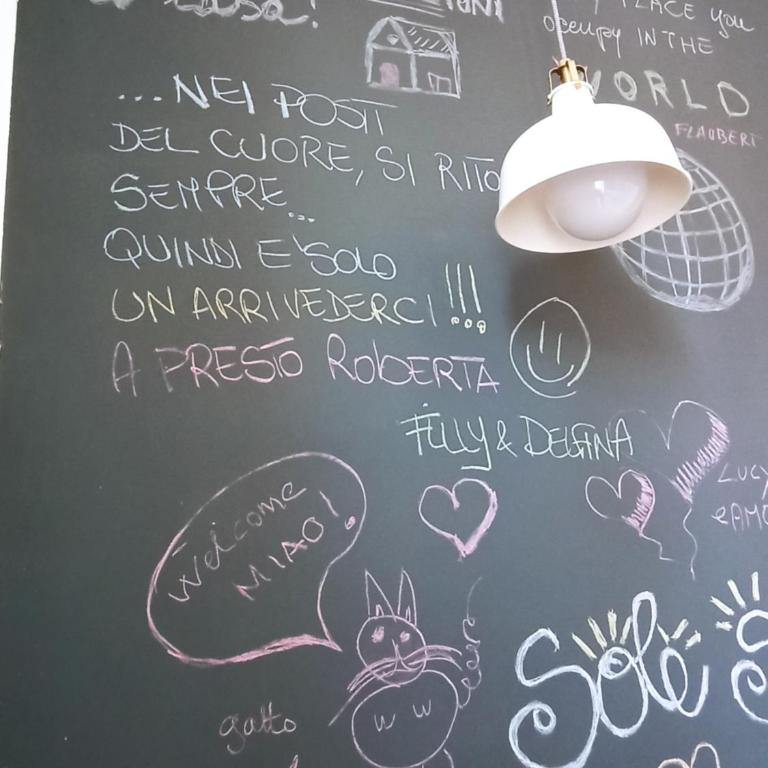 casa!
PLACE you
occupy IN THE
WORLD
FLAUBERT
...NEI POSTI
DEL CUORE, SI RITO
SEMPRE...
QUINDI E' SOLO
UN ARRIVEDERCI!!!
A PRESTO ROBERTA
FILLY & DELFINA
LUCY
Welcome
MIAO!
gatto
Sole